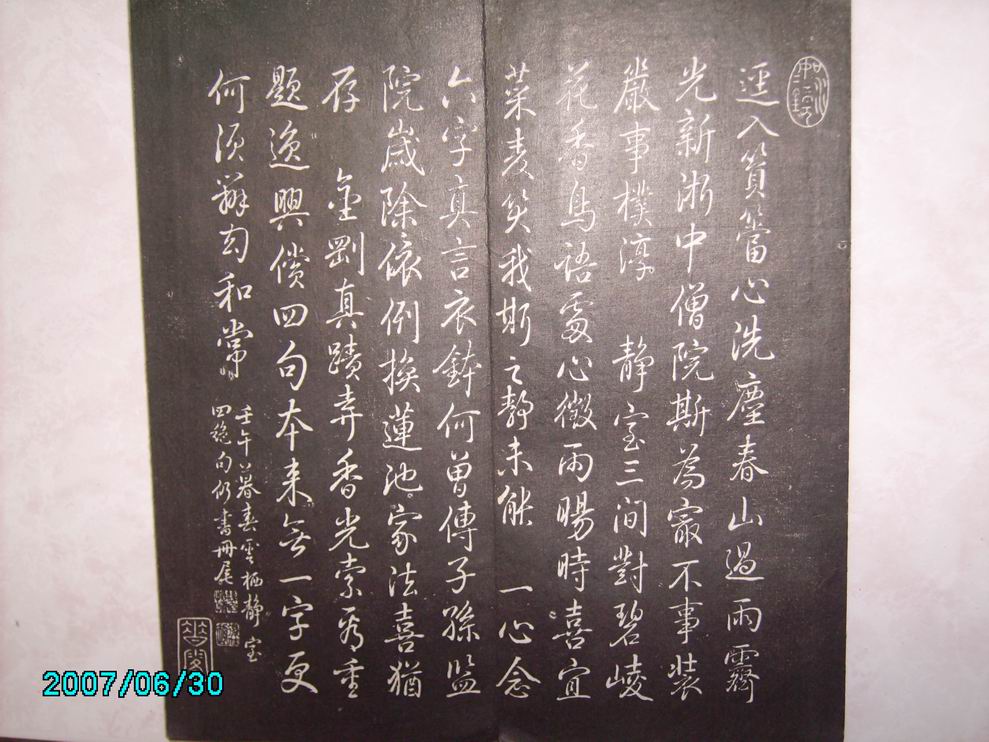 逕入篔簹心洗塵春山過雨霽
光新浙中僧院斯為最不事裝
嚴事樸淳 靜室三間對碧崚
花香鳥語處心徵雨暘時喜宜
菜麦笑我斯之靜未能 一心念
六字真言衣鉢何曾傳子孫監
院歲除依例換蓮池家法喜猶
存 金剛真蹟弆香光索為重
題逸興償四句本来無一字更
何須辦句和常
壬午暮春雲栖靜室
四絶句仍書冊尾
2007/06/30